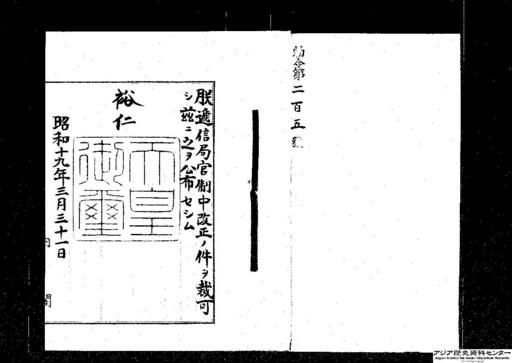 勅令第二百五號
朕遞信局官制中改正ノ件ヲ裁可
シ茲ニ之ヲ公布セシム
裕仁
天皇
御璽
昭和十九年三月三十一日
内閣
アジア歴史資料センター
Japan Center for Asian Historical Records